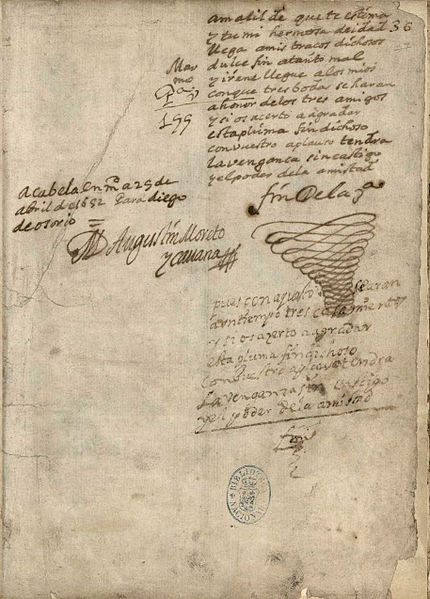 amalil de que te estima
y tu mi hermosa deidad 36
llega a mis braços dichosos
dulce fin a tanto mal
y irene llegue a los mios
conque tres bodas se haran
a honor de los tres amigos
y si os acerto a agradar
esta pluma fin dichoso
con vuestro aplauso tendra
la vengança sin castigo
y el poder de la amistad
fin De la
199
Acabela en M a 25 de
abril de 1652 Para diego
de osorio
Augustin Moreto
y cauana
pues con
a un tiempo tres casamientos
y si os acerto a agradar
esta pluma fin dichoso
con vuestro aplauso tendra
la venganza sin castigo
y el poder de la amistad
fin
BIBLIOTECA NACIONAL